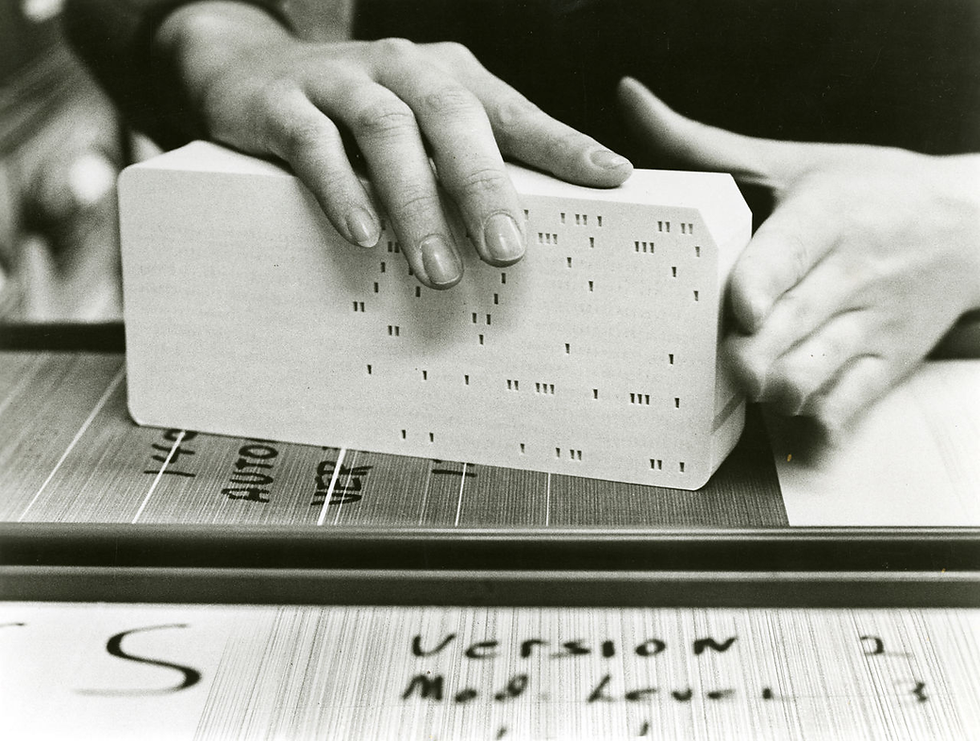 140
AUTO
VER
1
S
Version 2
Mod. Level 3